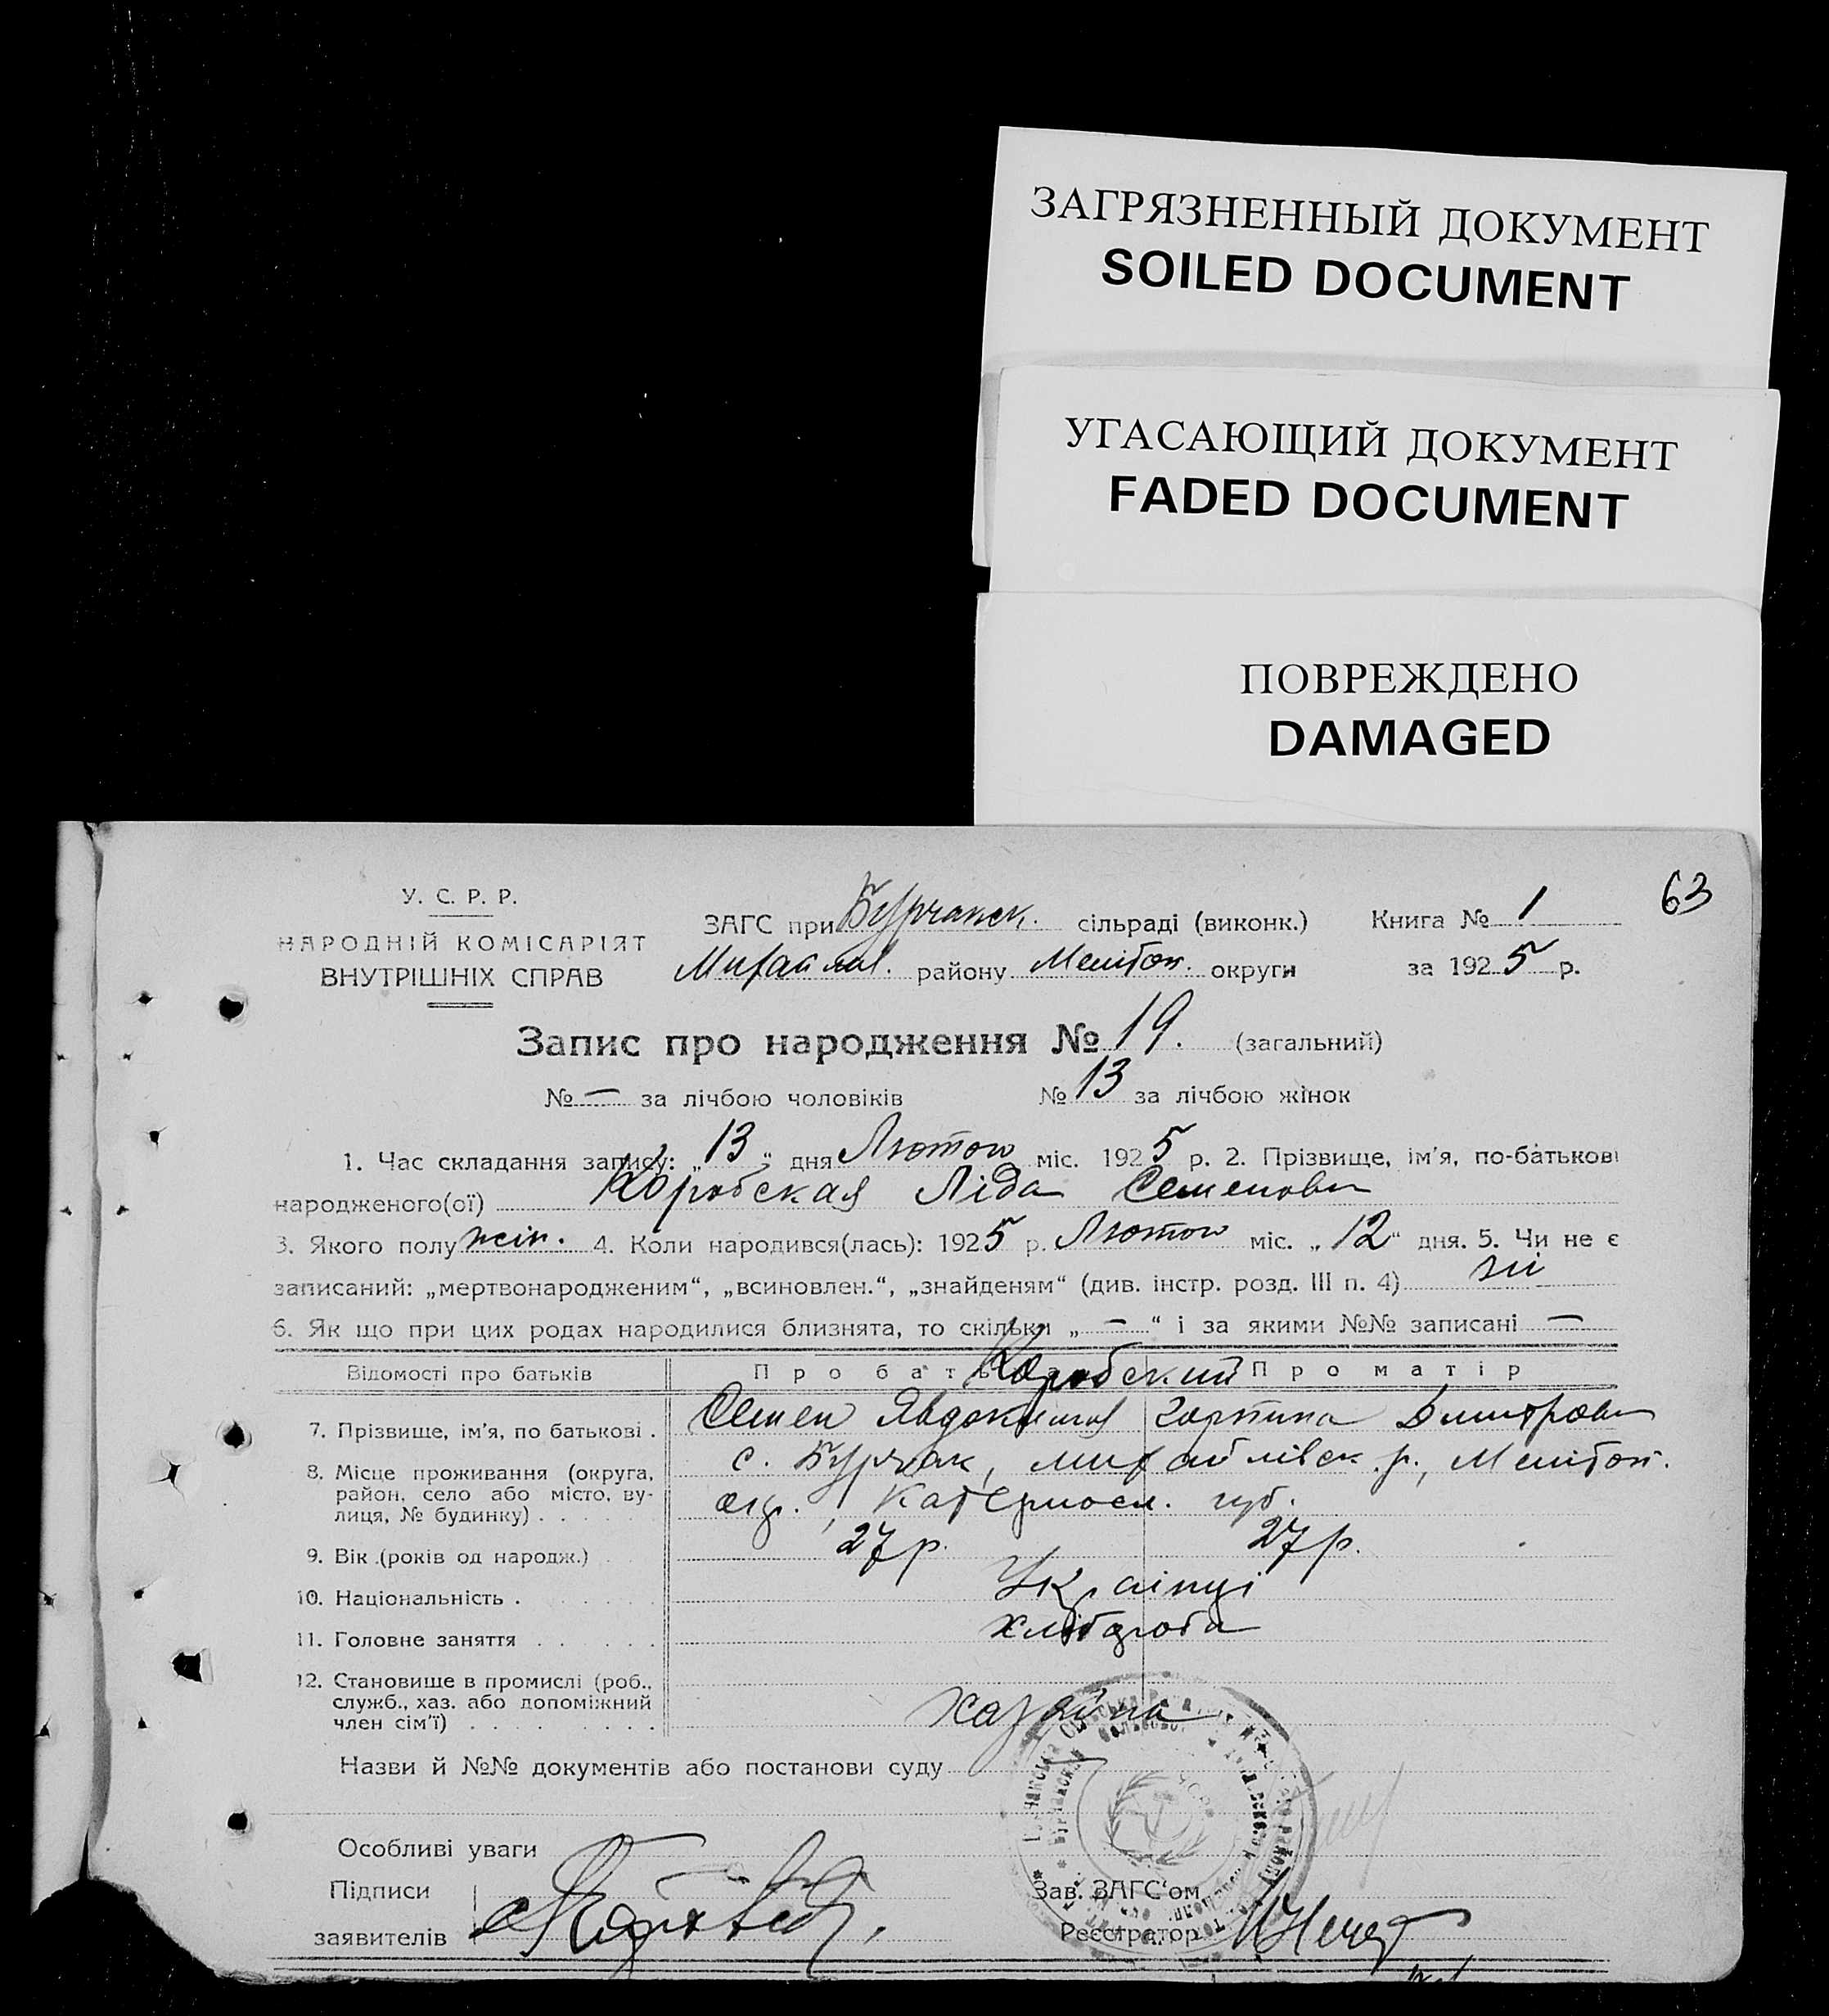 ЗАГРЯЗНЕННЫЙ ДОКУМЕНТ
SOILED DOCUMENT
УГАСАЮЩИЙ ДОКУМЕНТ
FADED DOCUMENT
ПОВРЕЖДЕНО
DAMAGED
63
У. С. Р. Р.
НАРОДНІЙ КОМІСАРІЯТ
ВНУТРІШНІХ СПРАВ
ЗАГС при Бурчакск. сільраді (виконк.) Книга № 1
Михайлов. району Меліток. округи за 1925 р.
Запис про народження № 19. (загальний)
№ — за лічбою чоловіків № 13 за лічбою жінок
1. Час складання запису: „13“ дня Лютого міс. 1925 р. 2. Прізвище, ім'я, по-батькові
народженого(ої) Коробская Ліда Семеновн
3. Якого полу жін. 4. Коли народився(лась): 1925 р. Лютого міс. „12“ дня. 5. Чи не є
записаний: „мертвонародженим“, „всиновлен.“, „знайденям“ (див. інстр. розд. III п. 4) ні
6. Як що при цих родах народилися близнята, то скільки „—“ і за якими №№ записані —
Відомості про батьків Про батька Про матір
Коробский
7. Прізвище, ім'я, по батькові . Семен Явдокимов Горпина Дмитровн
8. Місце проживання (округа, с. Бурчак, Михайлівск. р., Меліток.
район, село або місто, ву-
лиця, № будинку) . . . . . . окр., Катериносл. губ.
9. Вік (років од народж.) 27 р. 27 р.
10. Національність . Українці
11. Головне заняття . . . . . хлібороба
12. Становище в промислі (роб.,
служб., хаз. або допоміжний
член сім'ї) . . . . . . . . хазяїна
Назви й №№ документів або постанови суду
Особливі уваги
Підписи
заявителів
Зав. ЗАГС'ом
Реєстратор